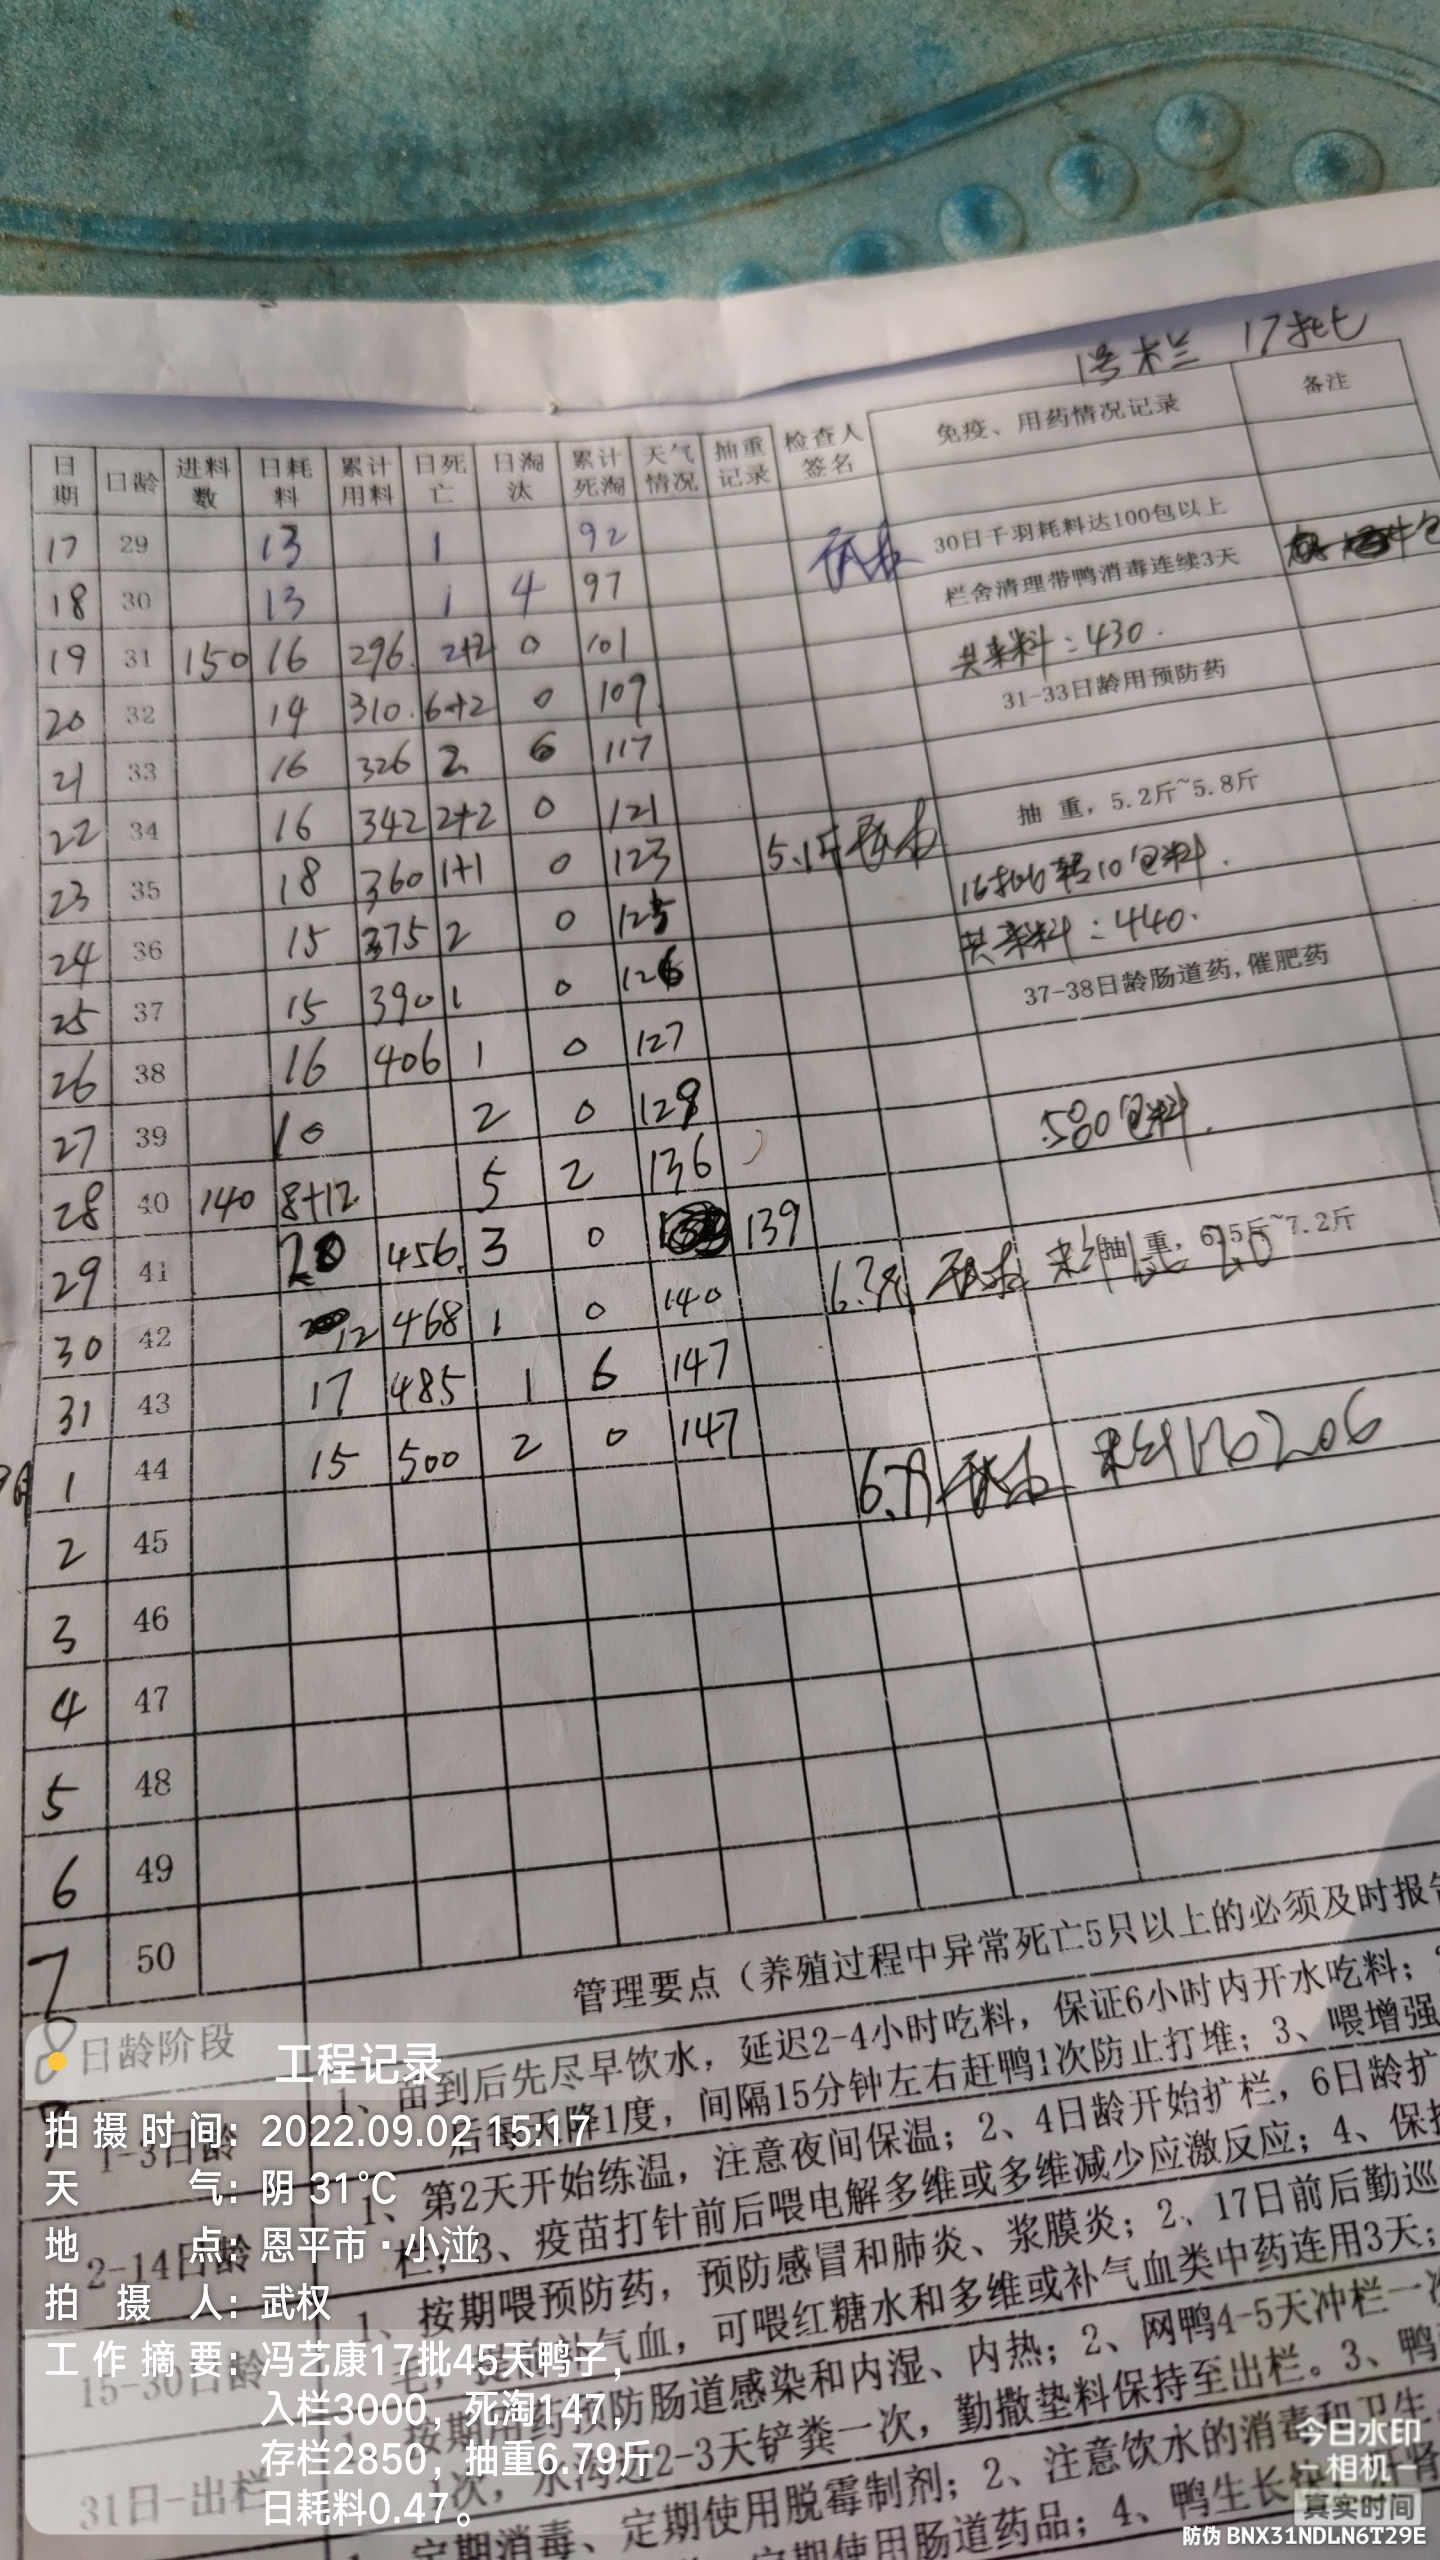 1号木兰 17批
日期 日龄 进料数 日耗料 累计用料 日死亡 日淘汰 累计死淘 天气情况 抽重记录 检查人签名 免疫、用药情况记录 备注
17 29 13 1 92
30日千羽耗料达100包以上
18 30 13 1 4 97
栏舍清理带鸭消毒连续3天
19 31 150 16 296. 2+2 0 101
共来料:430.
20 32 14 310. 6+2 0 109
31-33日龄用预防药
21 33 16 326 2 6 117
22 34 16 342 2+2 0 121
抽 重, 5.2斤~5.8斤
23 35 18 360 1+1 0 123 5.1斤
16批转10包料.
24 36 15 375 2 0 125
共来料:440.
25 37 15 390 1 0 126
37-38日龄肠道药,催肥药
26 38 16 406 1 0 127
27 39 10 2 0 129
580包料.
28 40 140 8+12 5 2 136
29 41 20 456. 3 0 139
抽 重, 6.5斤~7.2斤
30 42 12 468 1 0 140
31 43 17 485 1 6 147
1 44 15 500 2 0 147
料比2.06
2 45
3 46
4 47
5 48
6 49
7 50
管理要点（养殖过程中异常死亡5只以上的必须及时报告
8 日龄阶段
1、苗到后先尽早饮水，延迟2-4小时吃料，保证6小时内开水吃料；
后每天降1度，间隔15分钟左右赶鸭1次防止打堆；3、喂增强
1-3日龄
1、第2天开始练温，注意夜间保温；2、4日龄开始扩栏，6日龄扩
栏；3、疫苗打针前后喂电解多维或多维减少应激反应；4、保持
2-14日龄
1、按期喂预防药，预防感冒和肺炎、浆膜炎；2、17日前后勤巡
补气血，可喂红糖水和多维或补气血类中药连用3天；
15-30日龄
预防肠道感染和内湿、内热；2、网鸭4-5天冲栏一次
1次，水沟边2-3天铲粪一次，勤撒垫料保持至出栏。3、鸭
31日-出栏
定期消毒、定期使用脱霉制剂；2、注意饮水的消毒和卫生
定期使用肠道药品；4、鸭生长
工程记录
拍摄时间：2022.09.02 15:17
天气：阴 31℃
地点：恩平市·小湴
拍摄人：武权
工作摘要：冯艺康17批45天鸭子，
入栏3000，死淘147，
存栏2850，抽重6.79斤
日耗料0.47。
今日水印
相机
真实时间
防伪 BNX31NDLN6T29E